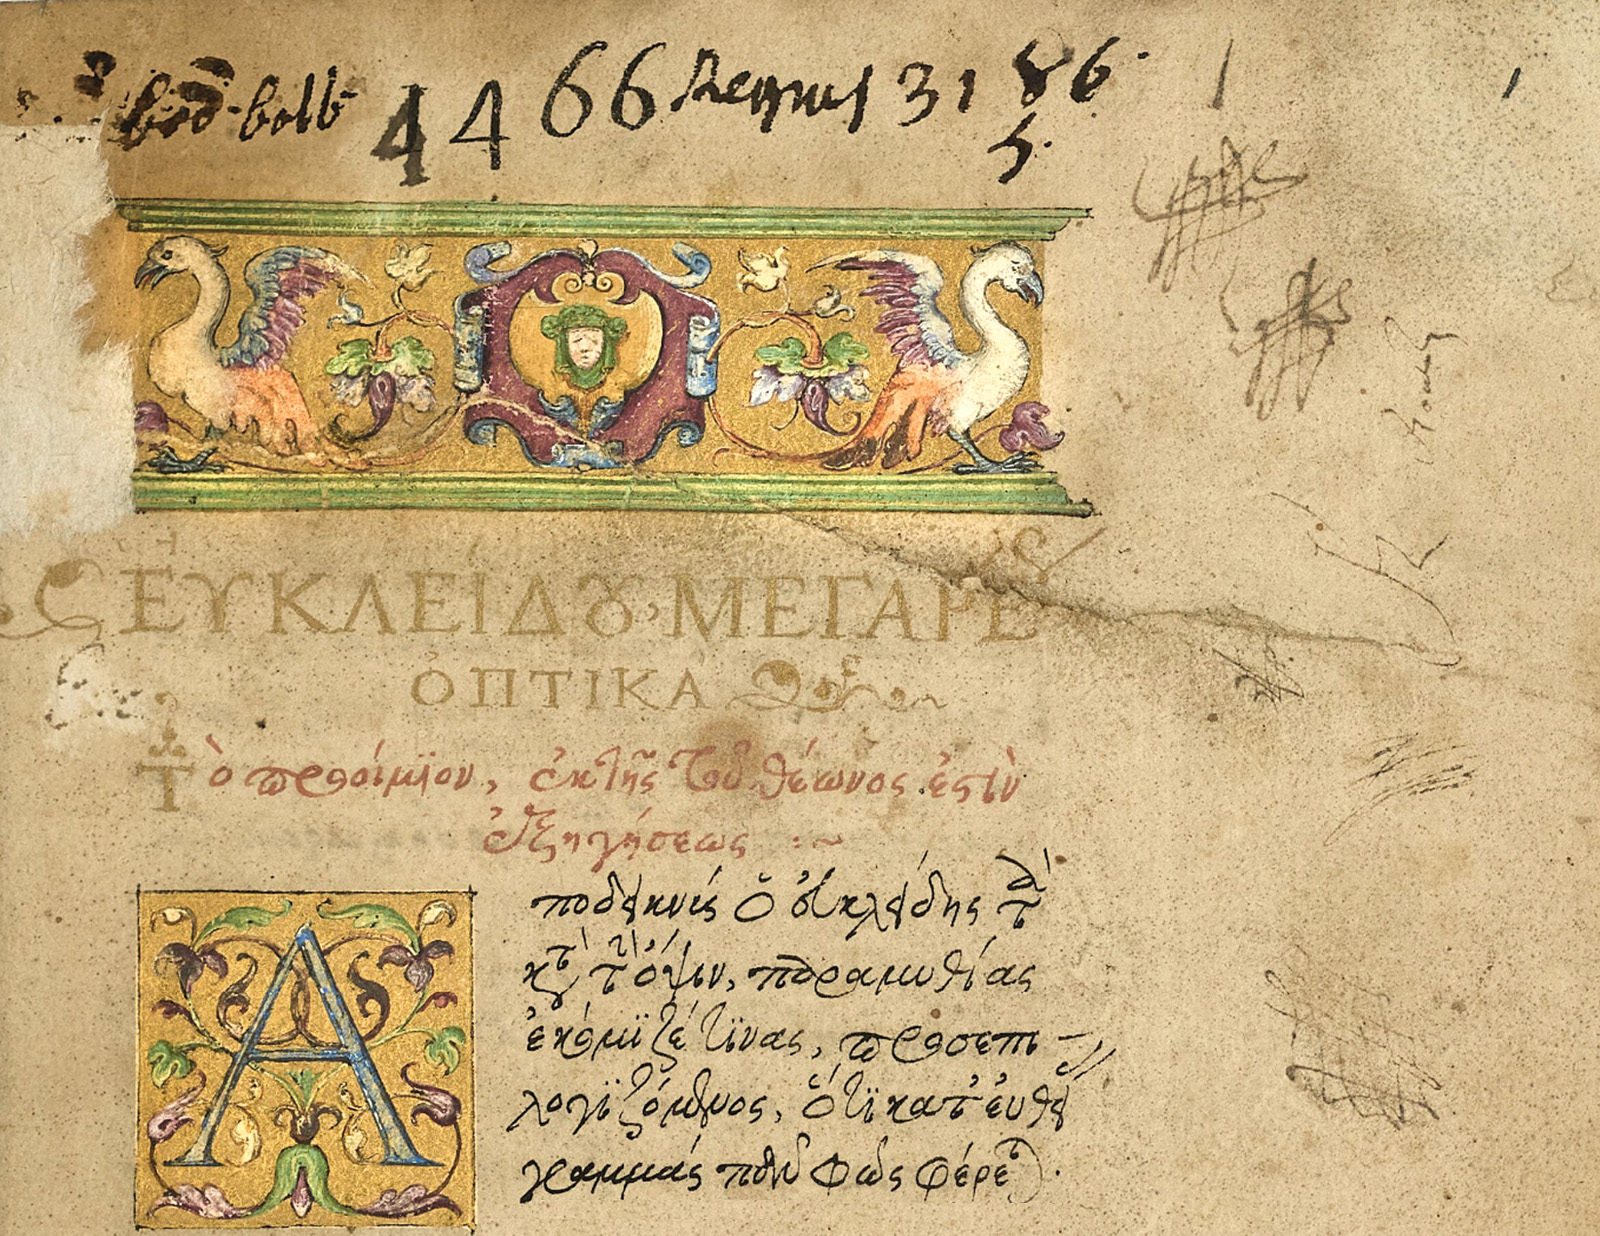 4466 Regius 3186.
5.
ΕΥΚΛΕΙΔȢ ΜΕΓΑΡΕ
ὈΠΤΙΚΑ
Τὸ προοίμϊον, ἐκ τῆς τοῦ θέωνος ἐστὶν
ἐξηγήσεως :~
Αποδεικνὺς ὁ εὐκλείδης τὰ
κατὰ τὴν ὄψιν, παραμυθίας
ἐκόμϊζέ τϊνας, προσεπι-
λογϊζόμενος, ὅτϊ κατ' εὐθεί
γραμμὰς πᾶν φῶς φέρεται.